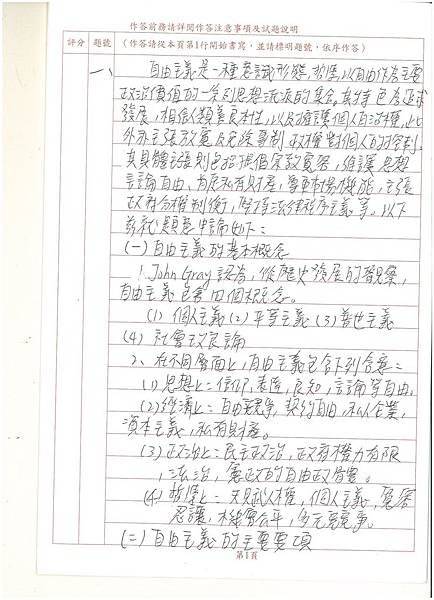 作答前務請詳閱作答注意事項及試題說明
評分 題號 (作答請從本頁第1行開始書寫,並請標明題號,依序作答)
一、 自由主義是一種意識形態、哲學,以自由作為主要
政治價值的一系列思想流派的集合,其特色為追求
發展,相信人類善良本性,以及擁護個人自治權,此
外亦主張放寬及免除專制政權對個人的控制
其具體主張則包括提倡宗教寬容,維護思想
言論自由、肯定私有財產,尊重市場機能,主張
政府分權制衡,堅持法律程序主義等。以下
茲就題意申論如下:
(一)自由主義的基本概念
1. John Gray認為,從歷史發展的觀察,
自由主義包含四個概念。
(1) 個人主義 (2) 平等主義 (3) 普世主義
(4) 社會改良論
2、在不同層面上,自由主義包含下列含意:
(1)思想上:信仰,表達,良知,言論等自由。
(2)經濟上:自由競爭,契約自由,私人企業,
資本主義,私有財產。
(3)政治上:民主政治,政府權力有限
,法治,憲政的自由政體。
(4)哲學上:天賦人權,個人主義,寬容
忍讓,機會公平,多元競爭。
(二)自由主義的主要要項
第1頁